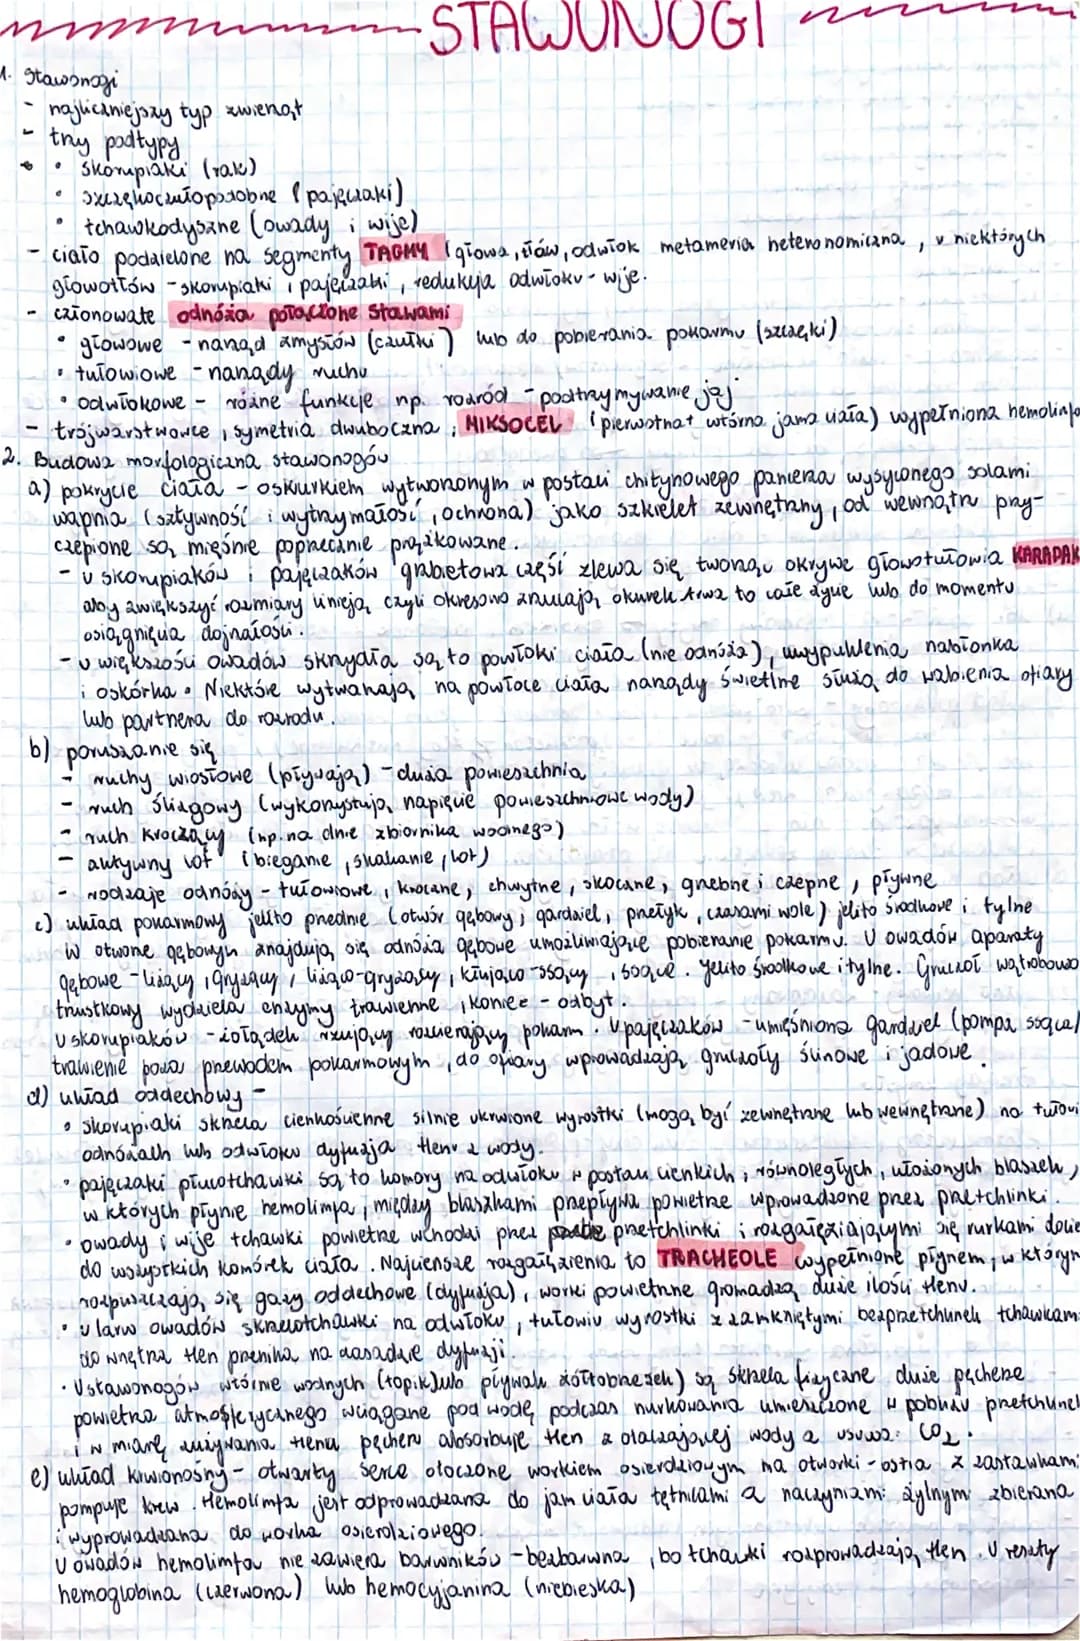 STAWONOGI
1. Stawonogi
- najliczniejszy typ zwierząt
- trzy podtypy
• skorupiaki (rak)
• szczękoczułopodobne (pajęczaki)
• tchawkodyszne (owady i wije)
- ciało podzielone na segmenty TAGMY (głowa, tłów, odwłok metameria heteronomiczna, u niektórych
głowotłów - skorupiaki i pajęczaki, redukcja odwłoku - wije.
- członowate odnóża połączone stawami
• głowowe - narząd zmysłów (czułki) lub do pobierania pokarmu (szczęki)
• tułowiowe - narządy ruchu
• odwłokowe - różne funkcje np. rozród - podtrzymywanie jaj
- trójwarstwowce, symetria dwuboczna, MIKSOCEL (pierwotna+ wtórna jama ciała) wypełniona hemolinfą
2. Budowa morfologiczna stawonogów
a) pokrycie ciała - oskórkiem wytworzonym w postaci chitynowego pancerza wysyconego solami
wapnia (sztywność i wytrzymałość, ochrona) jako szkielet zewnętrzny, od wewnątrz przy-
czepione są mięśnie poprzecznie prążkowane.
- u skorupiaków i pajęczaków grzbietowa część zlewa się tworząc okrywę głowotułowia KARAPAK
aby zwiększyć rozmiary linieją, czyli okresowo zrzucają oskórek trwa to całe życie lub do momentu
osiągnięcia dojrzałości.
- u większości owadów skrzydła są to powłoki ciała (nie odnóża), uwypuklenia nabłonka
i oskórka. Niektóre wytwarzają na powłoce ciała narządy świetlne służą do wabienia ofiary
lub partnera do rozrodu.
b) poruszanie się
- ruchy wiosłowe (pływają) - duża powierzchnia
- ruch ślizgowy (wykorzystują napięcie powierzchniowe wody)
- ruch kroczący (np. na dnie zbiornika wodnego)
- aktywny lot (bieganie, skakanie, lot)
- rodzaje odnóży - tułowiowe, kroczne, chwytne, skoczne, grzebne i czepne, pływne
c) układ pokarmowy jelito przednie (otwór gębowy, gardziel, przełyk, czasami wole) jelito środkowe i tylne
W otworze gębowym znajdują się odnóża gębowe umożliwiające pobieranie pokarmu. U owadów aparaty
gębowe - liżący, gryzący, liżąco-gryzący, kłująco-ssący, ssące. Jelito środkowe i tylne. Gruczoł wątrobowo
trzustkowy wydziela enzymy trawienne, koniec - odbyt.
U skorupiaków - żołądek rzujący rozcierający pokarm. U pajęczaków - umięśniona gardziel (pompa ssąca)
trawienie poza przewodem pokarmowym, do ofiary wprowadzają gruczoły ślinowe i jadowe.
d) układ oddechowy -
• skorupiaki skrzela cienkościenne silnie ukrwione wyrostki (mogą być zewnętrzne lub wewnętrzne) na tułowi
odnóżach lub odwłoku dyfuzja tlenu z wody.
• pajęczaki płucotchawki są to komory na odwłoku w postaci cienkich, równoległych, ułożonych blaszek,
w których płynie hemolimfa, między blaszkami przepływa powietrze wprowadzone przez przetchlinki.
• owady i wije tchawki powietrze wchodzi przez przetchlinki i rozgałęziającymi się rurkami docie
do wszystkich komórek ciała. Najcieńsze rozgałęzienia to TRACHEOLE wypełnione płynem, w którym
rozpuszczają się gazy oddechowe (dyfuzja), worki powietrzne gromadzą duże ilości tlenu.
• u larw owadów skrzelotchawki na odwłoku, tułowiu wyrostki z zamkniętymi bezprzetchlinek tchawkami
do wnętrza tlen przenika na zasadzie dyfuzji.
• U stawonogów wtórnie wodnych (topik) lub pływak żółtobrzeżek) są skrzela fizyczne duże pęcherze
powietrza atmosferycznego wciągane pod wodę podczas nurkowania umieszczone w pobliżu przetchlinek
i w miarę zużywania tlenu pęcherz absorbuje tlen z otaczającej wody a usuwa CO2.
e) układ krwionośny - otwarty serce otoczone workiem osierdziowym ma otworki - ostia z zastawkami
pompuje krew. Hemolimfa jest odprowadzana do jam ciała tętnicami a naczyniami żylnymi zbierana
i wyprowadzana do worka osierdziowego.
U owadów hemolimfa nie zawiera barwników - bezbarwna, bo tchawki rozprowadzają tlen. U reszty
hemoglobina (czerwona) lub hemocyjanina (niebieska)